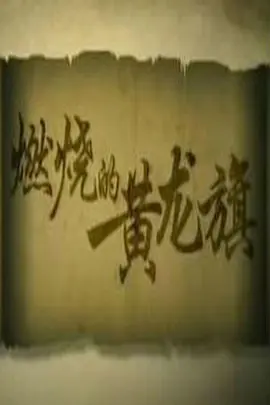 燃烧的
黄龙旗